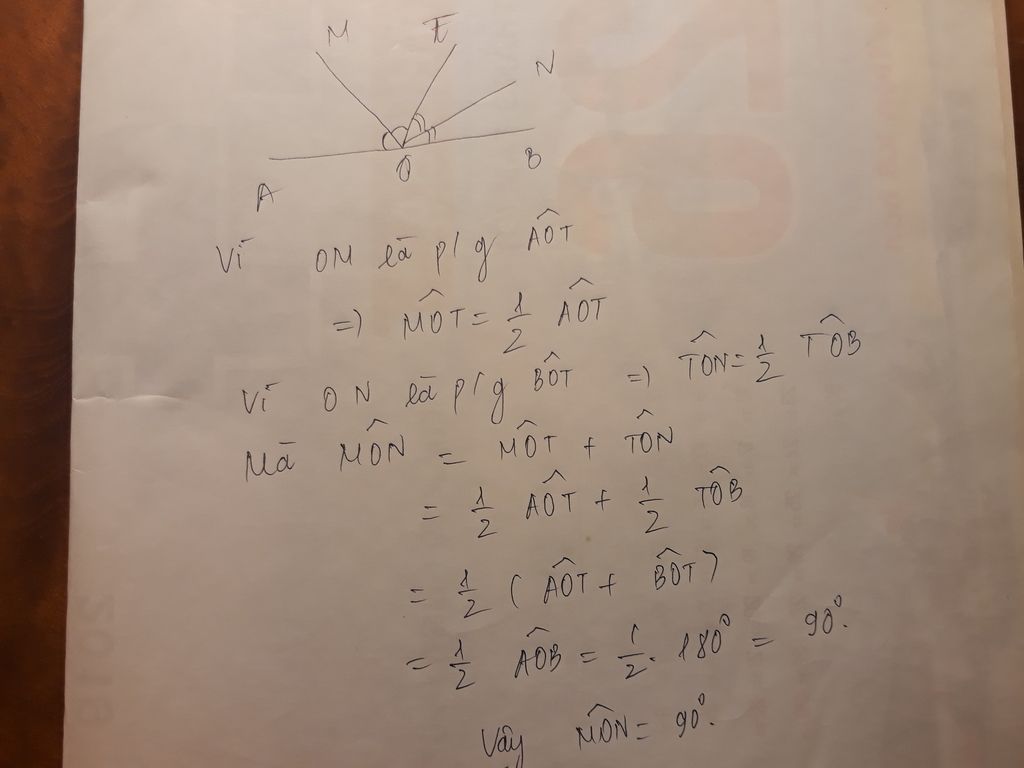 M
T
N
A
O
B
Vì OM là p/g AÔT
=) MÔT = 1/2 AÔT
Vì ON là p/g BÔT =) TÔN = 1/2 TÔB
Mà MÔN = MÔT + TÔN
= 1/2 AÔT + 1/2 TÔB
= 1/2 ( AÔT + BÔT )
= 1/2 AÔB = 1/2 . 180° = 90°.
Vậy MÔN = 90°.